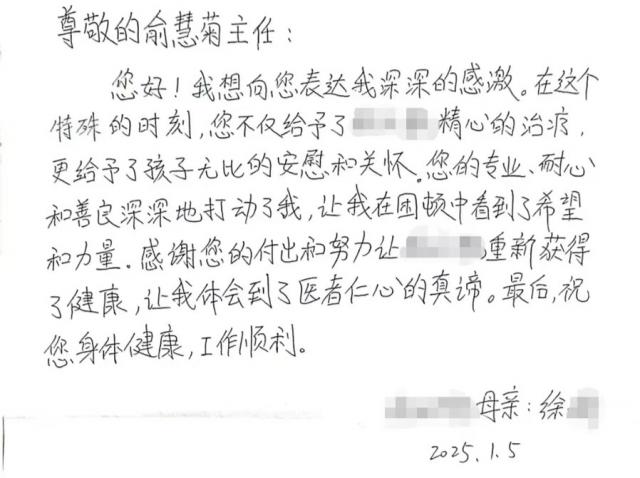 尊敬的俞慧菊主任：
您好！我想向您表达我深深的感激。在这个
特殊的时刻，您不仅给予了精心的治疗，
更给予了孩子无比的安慰和关怀。您的专业、耐心
和善良深深地打动了我，让我在困顿中看到了希望
和力量。感谢您的付出和努力让重新获得
了健康，让我体会到了医者仁心的真谛。最后，祝
您身体健康，工作顺利。
母亲：徐
2025.1.5